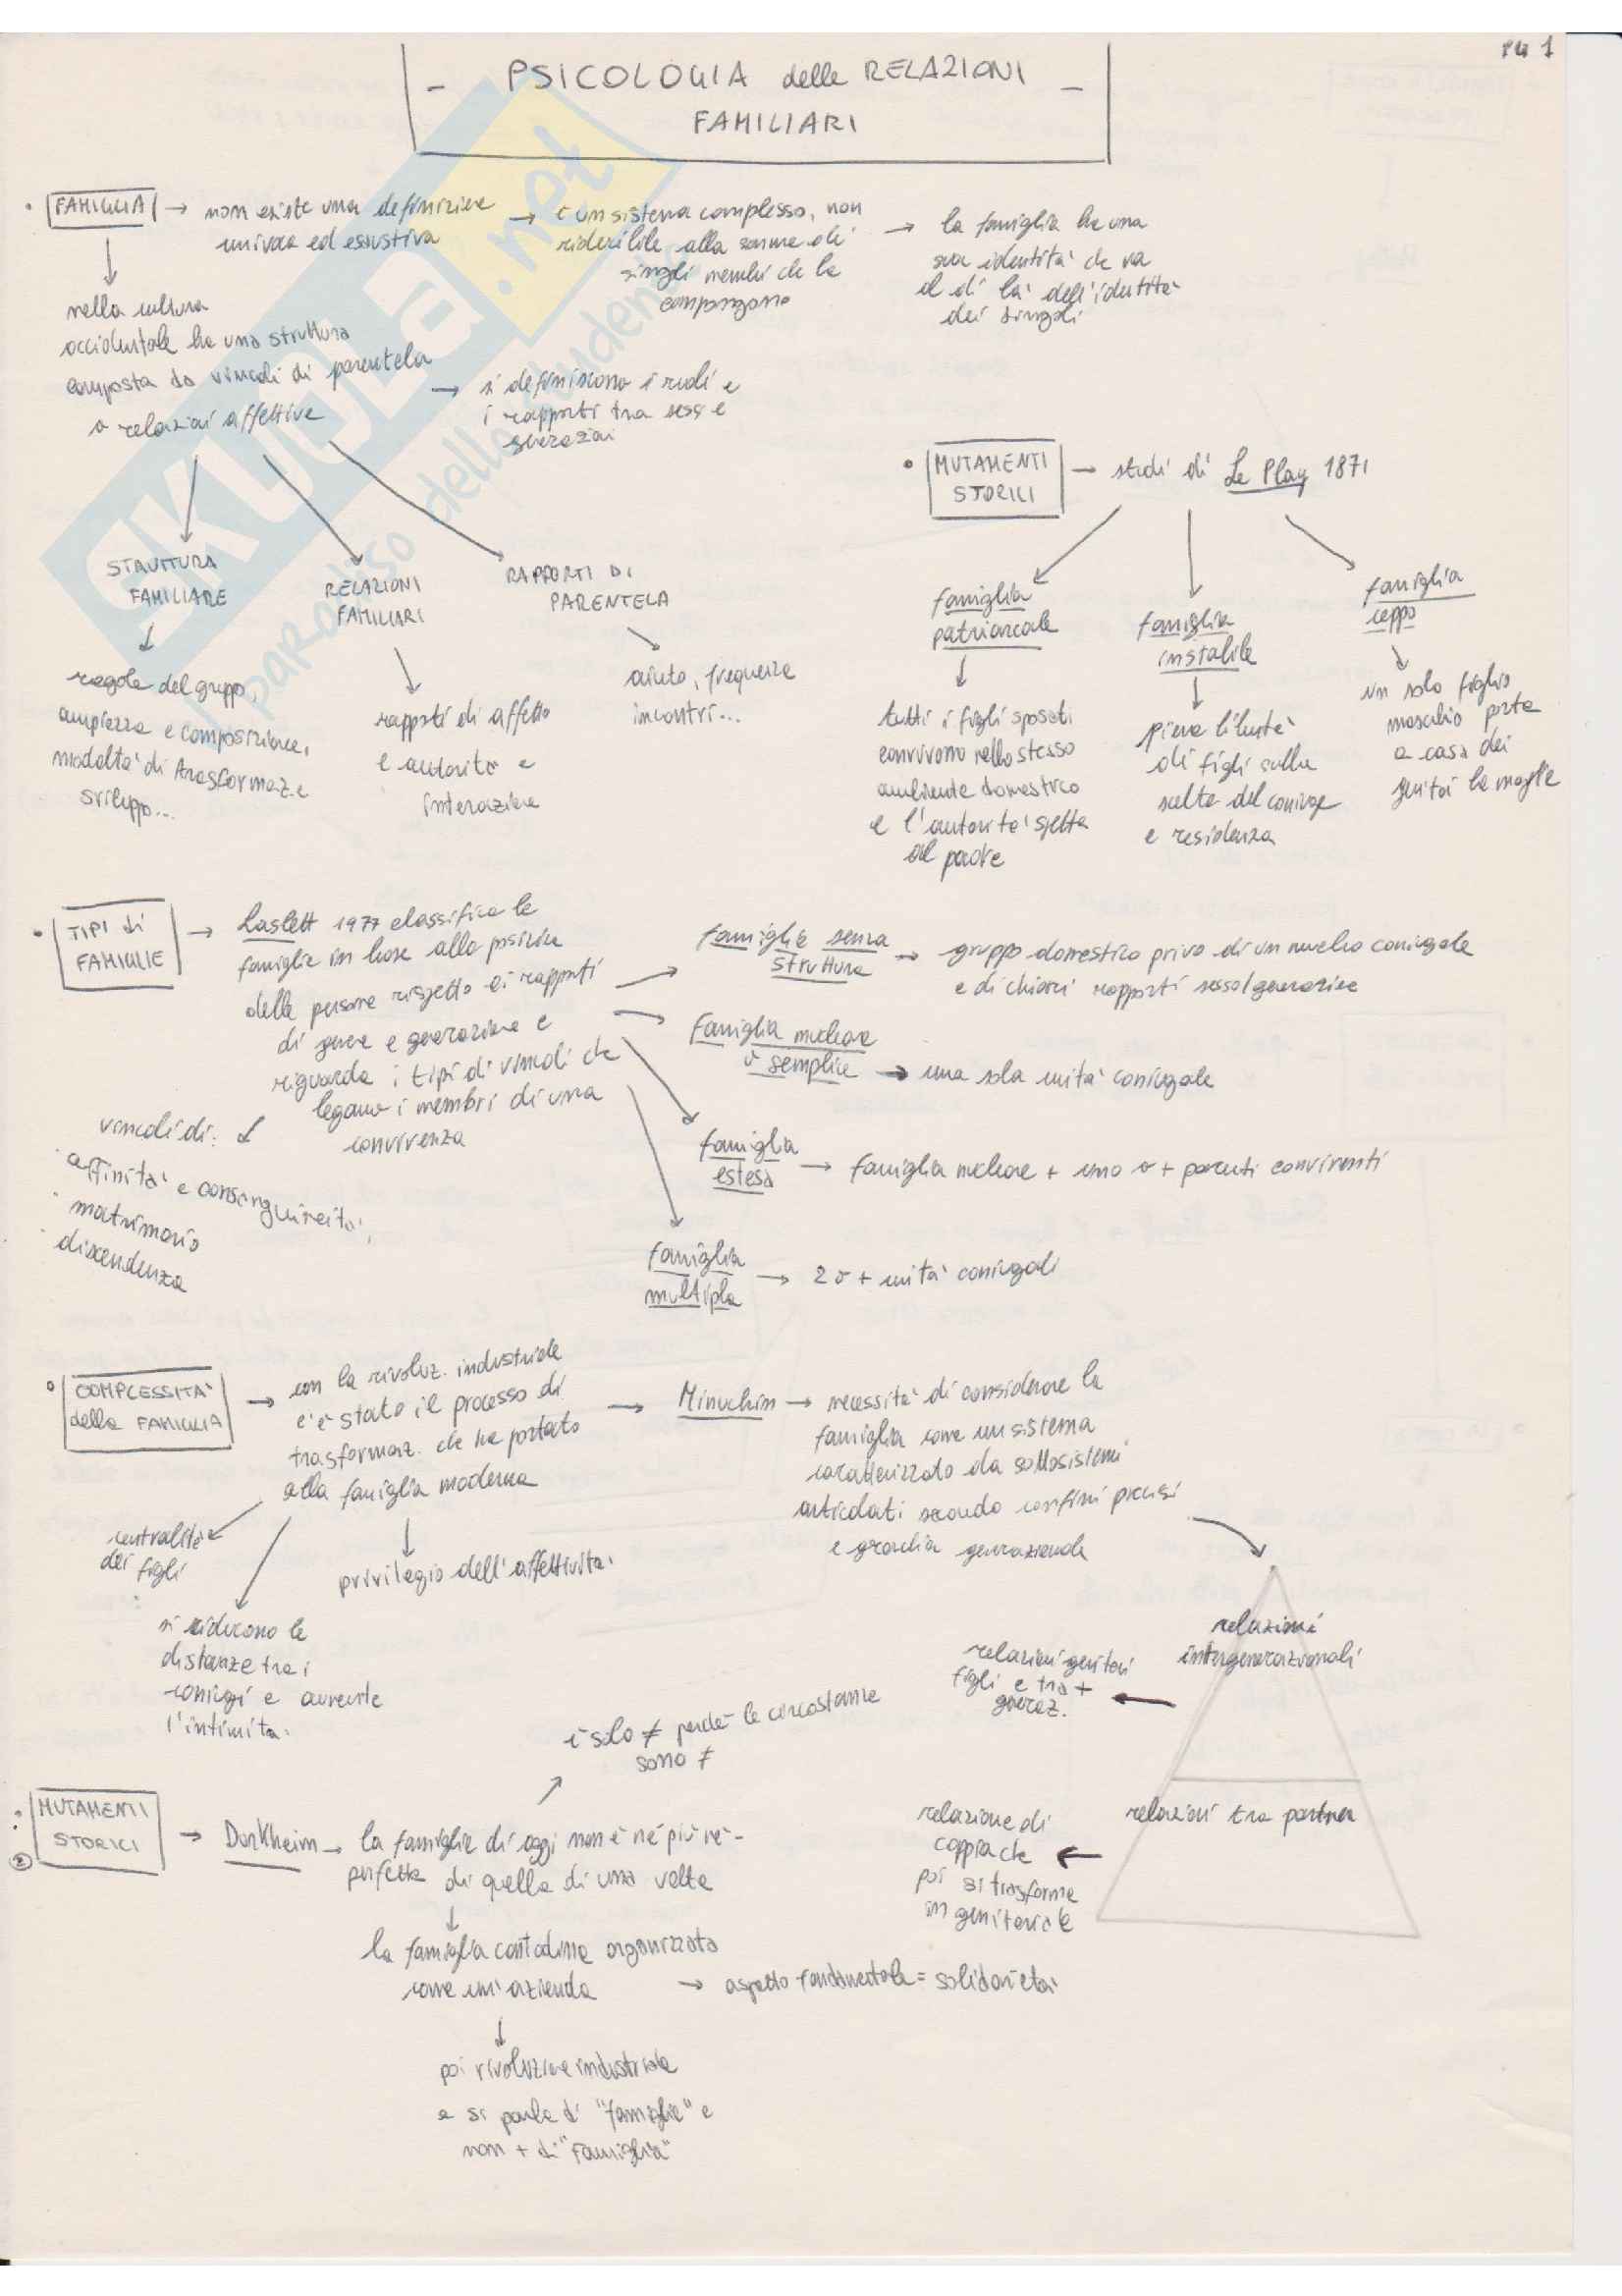 PG 1
- PSICOLOGIA delle RELAZIONI -
FAMILIARI
FAMIGLIA → non esiste una definizione
univoca ed esaustiva
→ è un sistema complesso, non
riducibile alla somma dei
singoli membri che la
compongono
→ la famiglia ha una
sua identità che va
al di là dell'identità
dei singoli
nella cultura
occidentale ha una struttura
composta da vincoli di parentela
o relazioni affettive
→ si definiscono i ruoli e
i rapporti tra sessi e
generazioni
STRUTTURA
FAMILIARE
regole del gruppo,
ampiezza e composizione,
modalità di trasformaz. e
sviluppo...
RELAZIONI
FAMILIARI
rapporti di affetto
e autorità e
interazione
RAPPORTI DI
PARENTELA
aiuto, frequenza
incontri...
MUTAMENTI
STORICI
→ studi di Le Play 1871
famiglia
patriarcale
tutti i figli sposati
convivono nello stesso
ambiente domestico
e l'autorità spetta
al padre
famiglia
instabile
piena libertà
di figli sulla
scelta del coniuge
e residenza
famiglia
ceppo
un solo figlio
maschio porta
a casa dei
genitori la moglie
TIPI di
FAMIGLIE
→ Laslett 1977 classifica le
famiglie in base alla posizione
delle persone rispetto ai rapporti
di genere e generazione e
riguarda i tipi di vincoli che
legano i membri di una
convivenza
vincoli di:
affinità e consanguineità,
matrimonio
discendenza
famiglie senza
struttura
→ gruppo domestico privo di un nucleo coniugale
e di chiari rapporti sesso/generazione
famiglia nucleare
o semplice → una sola unità coniugale
famiglia
estesa
→ famiglia nucleare + uno o + parenti conviventi
famiglia
multipla
→ 2 o + unità coniugali
COMPLESSITA'
della FAMIGLIA
→ con la rivoluz. industriale
c'è stato il processo di
trasformaz. che ha portato
alla famiglia moderna
centralità
dei figli
si riducono le
distanze tra i
coniugi e aumenta
l'intimità.
privilegio dell'affettività.
→ Minuchin → necessità di considerare la
famiglia come un sistema
caratterizzato da sottosistemi
articolati secondo confini precisi
e gerarchia generazionale
relazioni
intergenerazionali
relazioni genitori
figli e tra +
generaz.
relazioni tra partner
relazione di
coppia che
poi si trasforma
in genitoriale
MUTAMENTI
STORICI
2
→ Durkheim → la famiglia di oggi non è né più né -
perfetta di quella di una volta
è solo ≠ perché le circostanze
sono ≠
la famiglia contadina organizzata
come un'azienda
→ aspetto fondamentale = solidarietà
poi rivoluzione industriale
e si parla di "famiglie" e
non + di "Famiglia"
SKUOLA.net
il paradiso dello studente